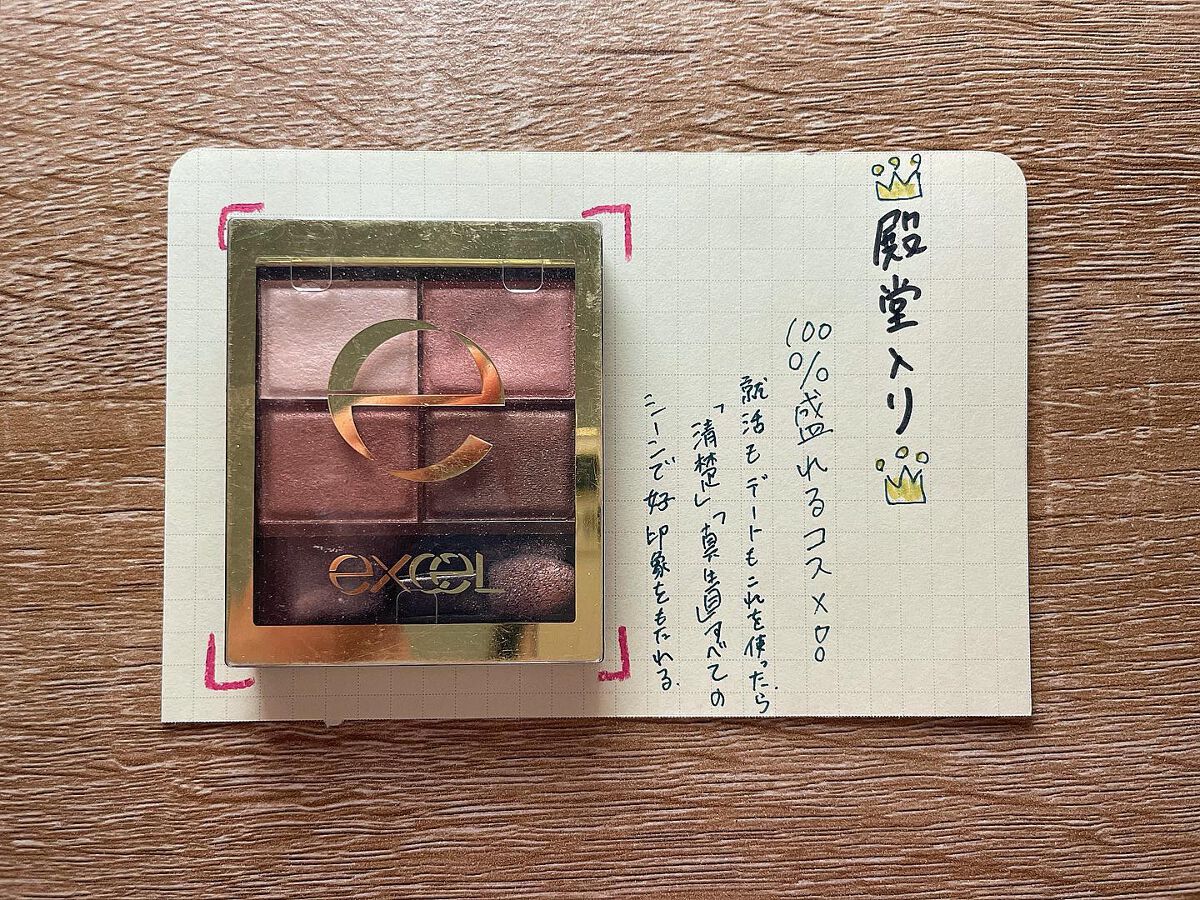 殿堂入り
100%盛れるコスメ!!
就活もデートもこれを使ったら
「清楚」「真すべての
シーンで好印象をもたれる.
e
excel